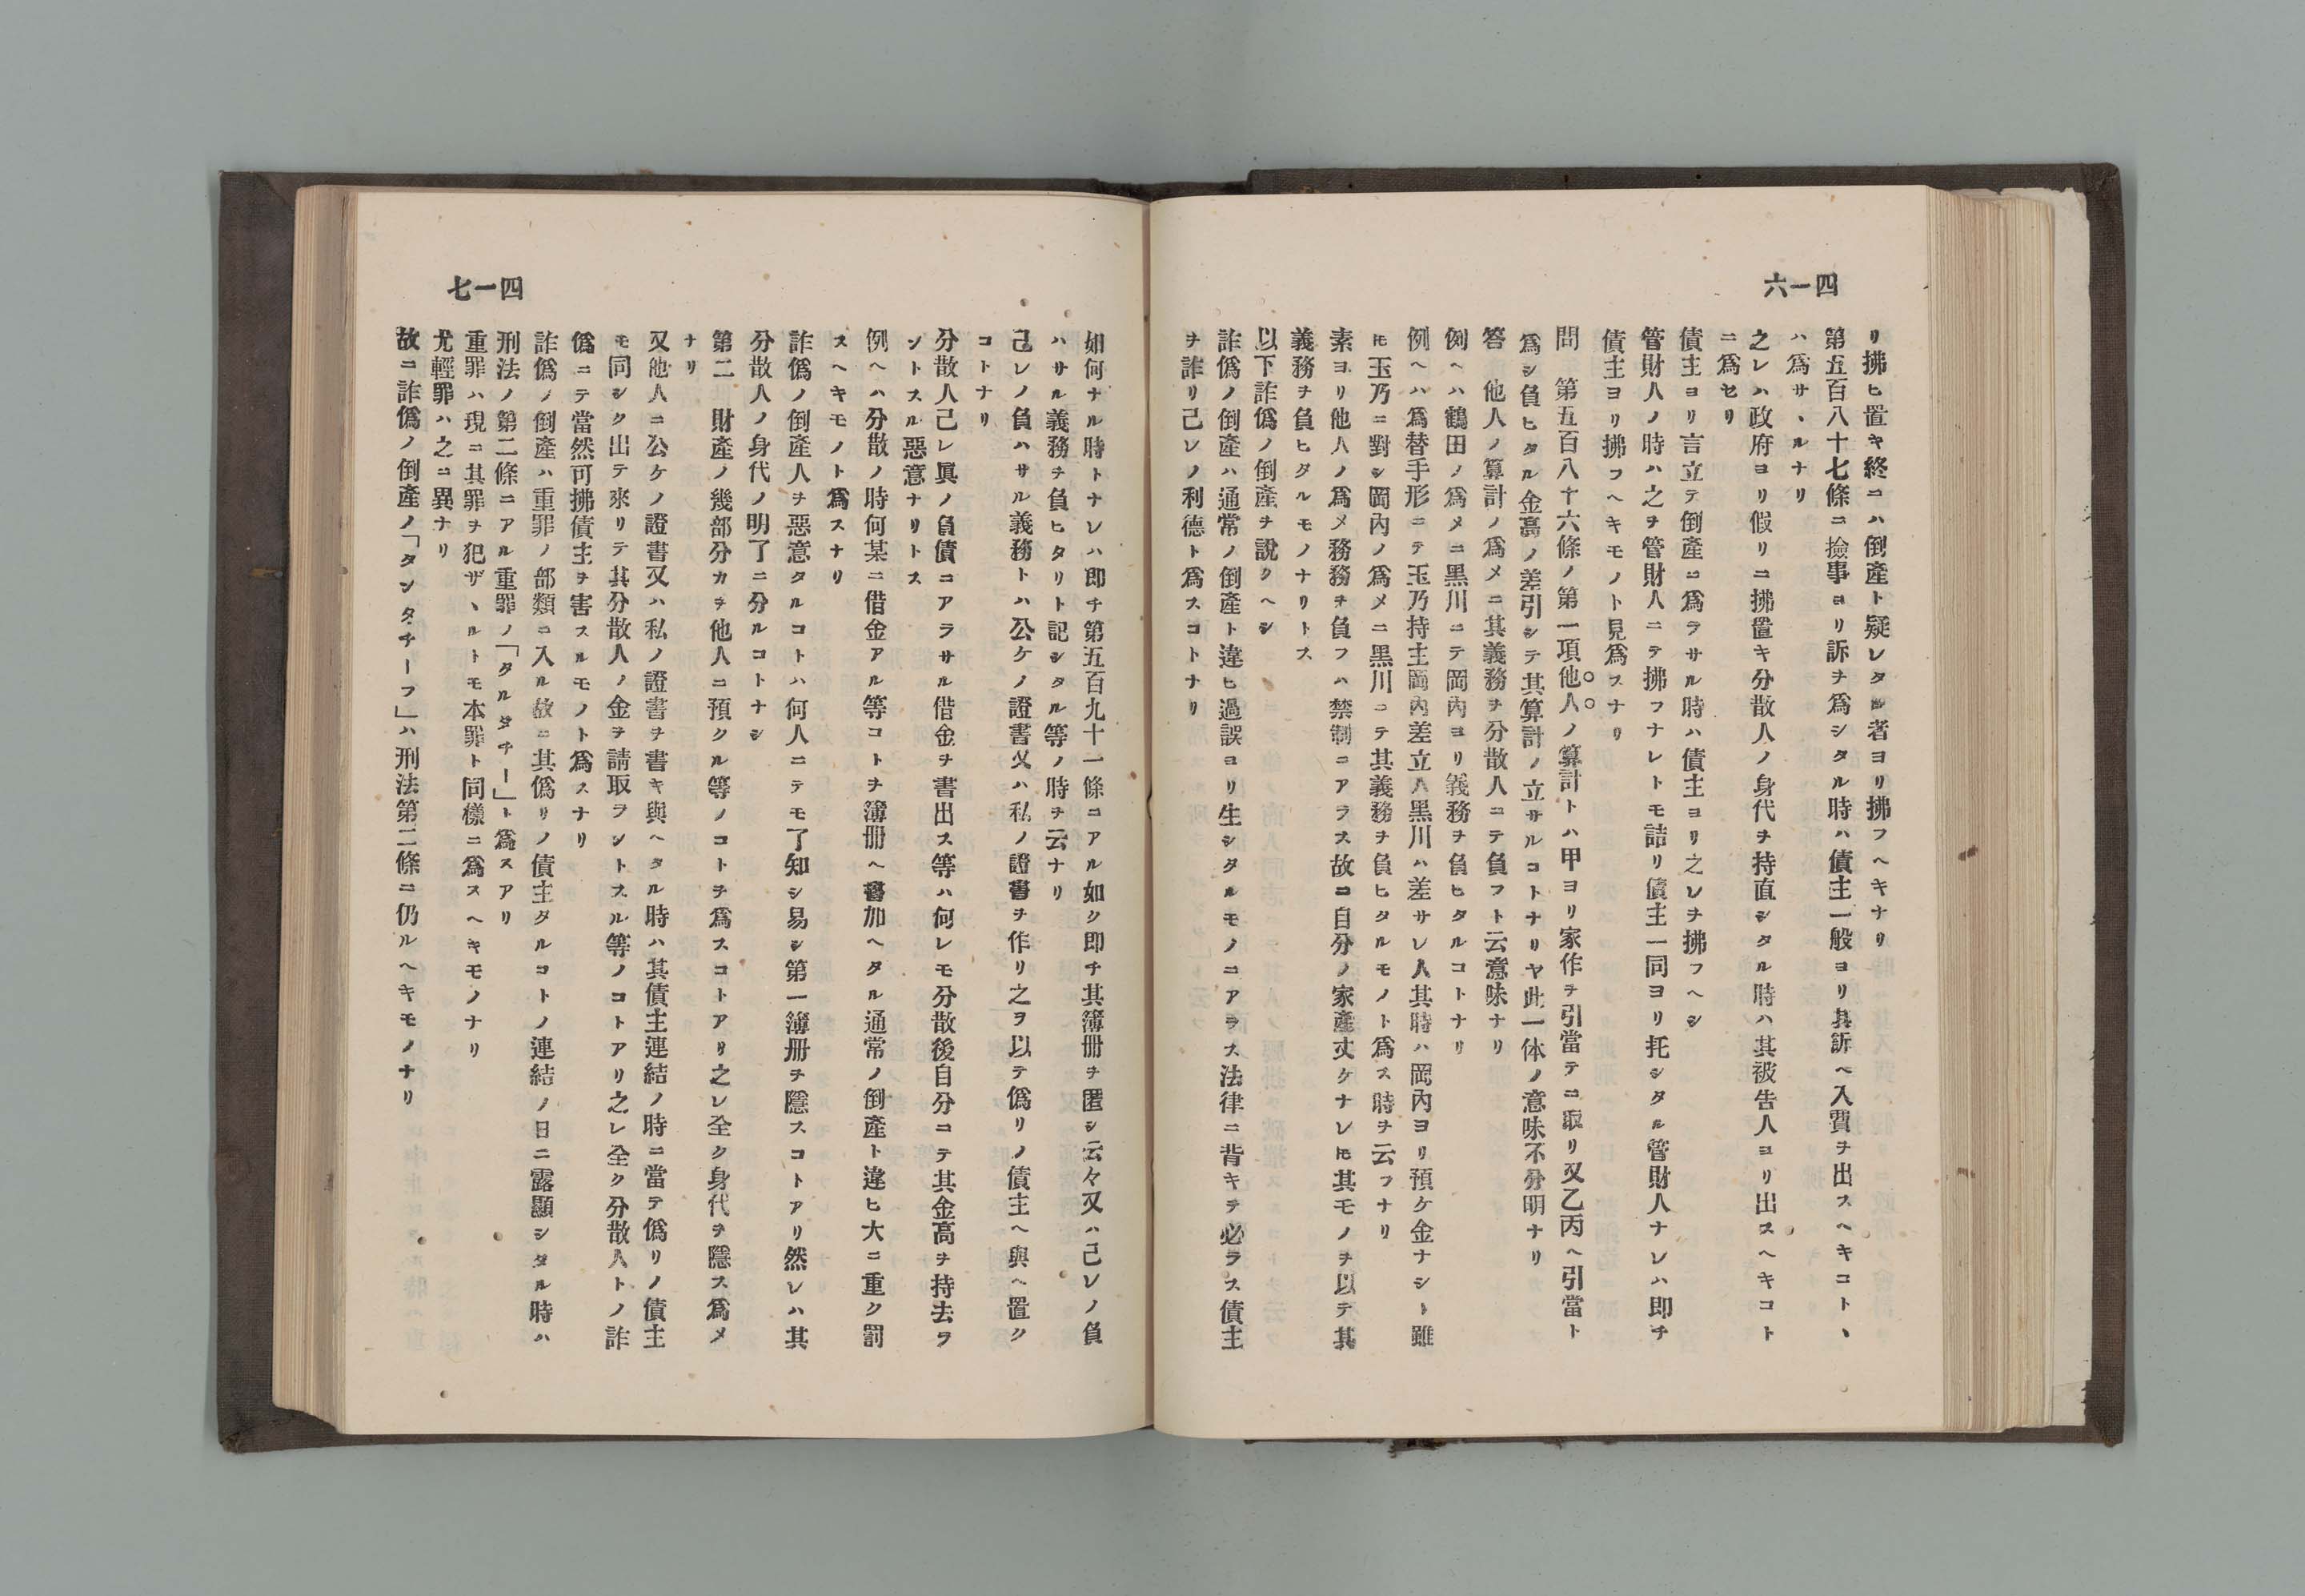 四一六
リ拂ヒ置キ終ニハ倒產ト疑レタル者ヨリ拂フヘキナリ
第五百八十七條ニ撿事ヨリ訴ヲ爲シタル時ハ債主一般ヨリ其訴ヘ入費ヲ出スヘキコトヽ
ハ爲サヽルナリ
之レハ政府ヨリ假リニ拂置キ分散人ノ身代ヲ持直シタル時ハ其被告人ヨリ出スヘキコト
ニ爲セリ
債主ヨリ言立テ倒產ニ爲ラサル時ハ債主ヨリ之レヲ拂フヘシ
管財人ノ時ハ之ヲ管財人ニテ拂フナレトモ詰リ債主一同ヨリ托シタル管財人ナレハ即チ
債主ヨリ拂フヘキモノト見爲スナリ
問　第五百八十六條ノ第一項他人ノ算計トハ甲ヨリ家作ヲ引當テニ取リ又乙丙ヘ引當ト
爲シ負ヒタル金高ノ差引シテ其算計ノ立サルコトナリヤ此一体ノ意味不分明ナリ
答　他人ノ算計ノ爲メニ其義務ヲ分散人ニテ負フト云意味ナリ
例ヘハ鶴田ノ爲メニ黑川ニテ岡內ヨリ義務ヲ負ヒタルコトナリ
例ヘハ爲替手形ニテ玉乃持主岡內差立人黑川ハ差サレ人其時ハ岡內ヨリ預ケ金ナシト雖
𪜈玉乃ニ對シ岡內ノ爲メニ黑川ニテ其義務ヲ負ヒタルモノト爲ス時ヲ云フナリ
素ヨリ他人ノ爲メ務務ヲ負フハ禁制ニアラス故ニ自分ノ家產丈ケナレ𪜈其モノヲ以テ其
義務ヲ負ヒタルモノナリトス
以下詐僞ノ倒產ヲ說クヘシ
詐僞ノ倒產ハ通常ノ倒產ト違ヒ過誤ヨリ生シタルモノニアラス法律ニ背キテ必ラス債主
ヲ詐リ己レノ利德ト爲スコトナリ
四一七
如何ナル時トナレハ即チ第五百九十一條ニアル如ク即チ其簿册ヲ匿シ云々又ハ己レノ負
ハサル義務ヲ負ヒタリト記シタル等ノ時ヲ云ナリ
己レノ負ハサル義務トハ公ケノ證書又ハ私ノ證書ヲ作リ之ヲ以テ僞リノ債主ヘ與ヘ置ク
コトナリ
分散人己レ眞ノ負債ニアラサル借金ヲ書出ス等ハ何レモ分散後自分ニテ其金高ヲ持去ラ
ントスル惡意ナリトス
例ヘハ分散ノ時何某ニ借金アル等コトヲ簿册ヘ書加ヘタル通常ノ倒產ト違ヒ大ニ重ク罰
スヘキモノト爲スナリ
詐僞ノ倒產人ヲ惡意タルコトハ何人ニテモ了知シ易シ第一簿册ヲ隱スコトアリ然レハ其
分散人ノ身代ノ明了ニ分ルコトナシ
第二　財產ノ幾部分カヲ他人ニ預クル等ノコトヲ爲スコトアリ之レ全ク身代ヲ隱ス爲メ
ナリ
又他人ニ公ケノ證書又ハ私ノ證書ヲ書キ與ヘタル時ハ其債主連結ノ時ニ當テ僞リノ債主
モ同シク出テ來リテ其分散人ノ金ヲ請取ラントスル等ノコトアリ之レ全ク分散人トノ詐
僞ニテ當然可拂債主ヲ害スルモノト爲スナリ
詐僞ノ倒產ハ重罪ノ部類ニ入ル故ニ其僞リノ債主タルコトノ連結ノ日ニ露顯シタル時ハ
刑法ノ第二條ニアル重罪ノ「タルタチー」ト爲スアリ
重罪ハ現ニ其罪ヲ犯ザヽルトモ本罪ト同樣ニ爲スヘキモノナリ
尤輕罪ハ之ニ異ナリ
故ニ詐僞ノ倒產ノ「タンタチーフ」ハ刑法第二條ニ仍ルヘキモノナリ